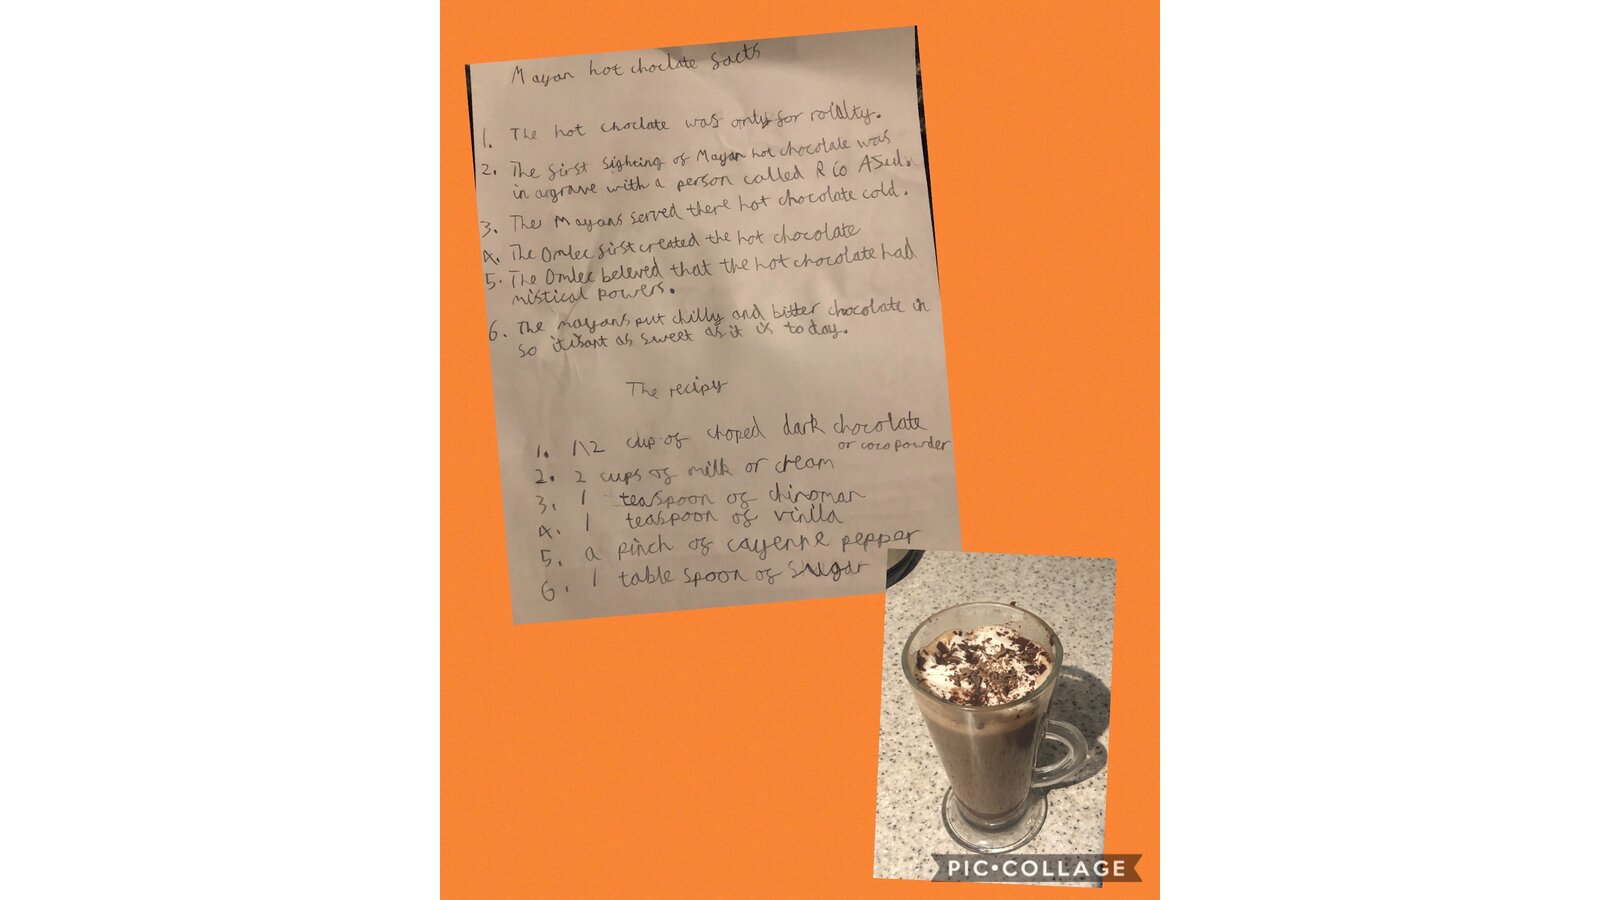 Mayan hot choclate facts
1. The hot choclate was only for roialty.
2. The first sighting of Mayan hot chocolate was
in a grave with a person called Rio Asul.
3. The Mayans served there hot chocolate cold.
4. The Omlec first created the hot chocolate
5. The Omlec beleved that the hot chocolate had
mistical powers.
6. The mayans put chilly and bitter chocolate in
so it isant as sweet as it is today.
The recipy
1. 1\2 cup of choped dark chocolate
or coco powder
2. 2 cups of milk or cream
3. 1 teaspoon of chinoman
4. 1 teaspoon of vinila
5. a pinch of cayenne pepper
6. 1 table spoon of sugar
PIC•COLLAGE